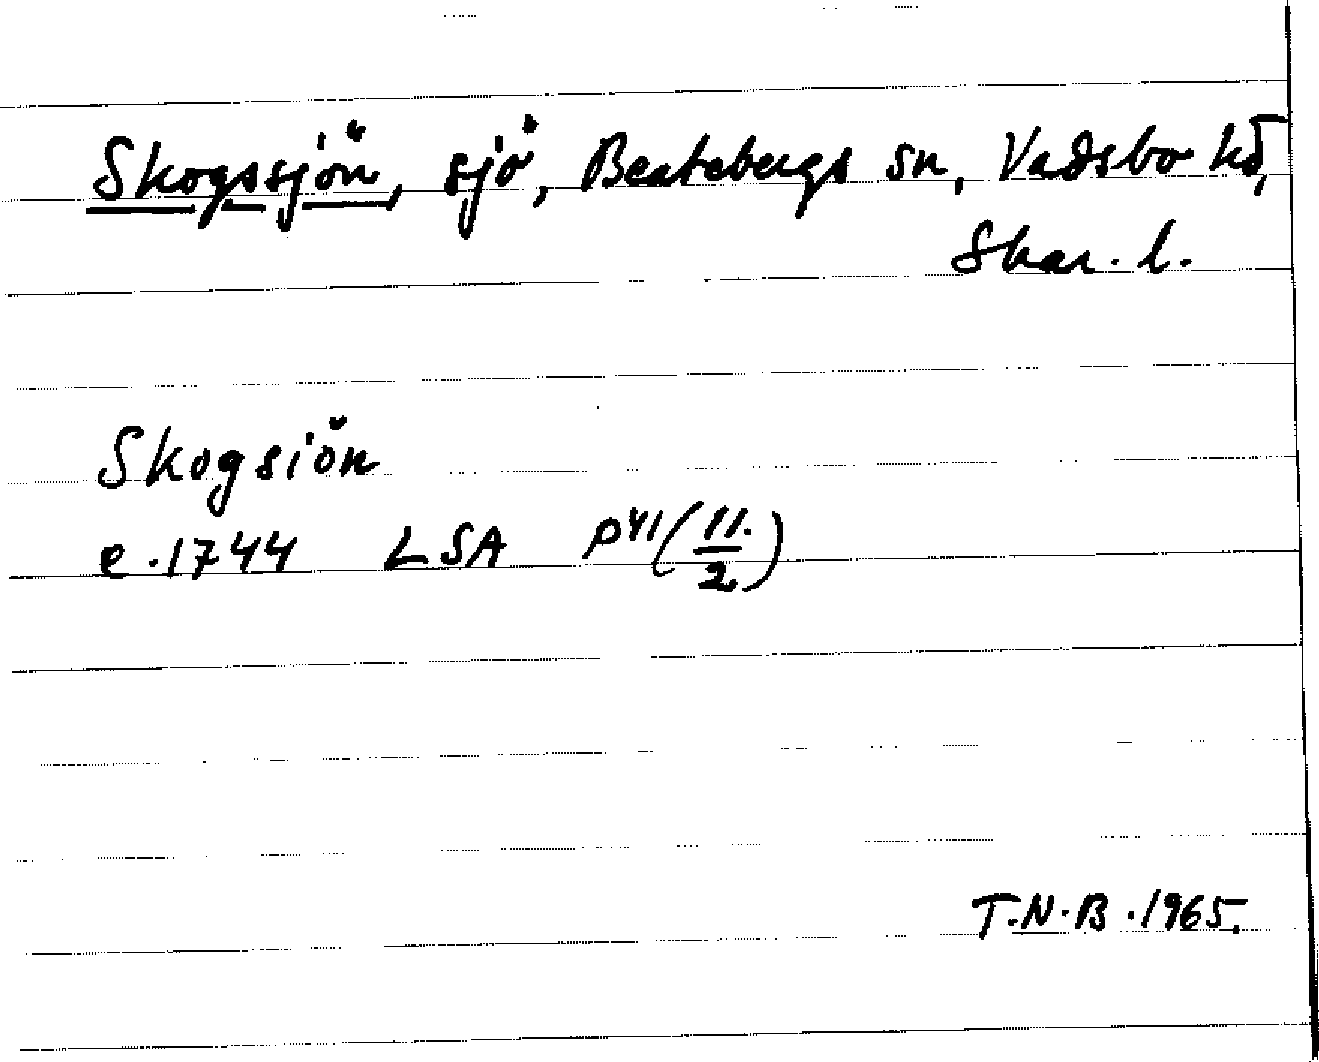 Skogssjön, sjö, Beatebergs sn, Vadsbo hd,
Skar. l.
Skogsiön
e. 1744 LSA P41 (11./2.)
T.N.B. 1965.